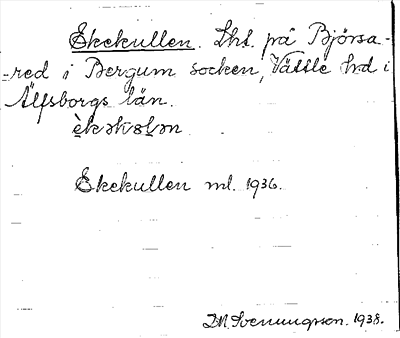 Ekekullen. Lht. på Björsa-
-red i Bergum socken, Vättle hd i
Älfsborgs län.
Ekekullen ml. 1936.
I.M. Svenungson. 1938.